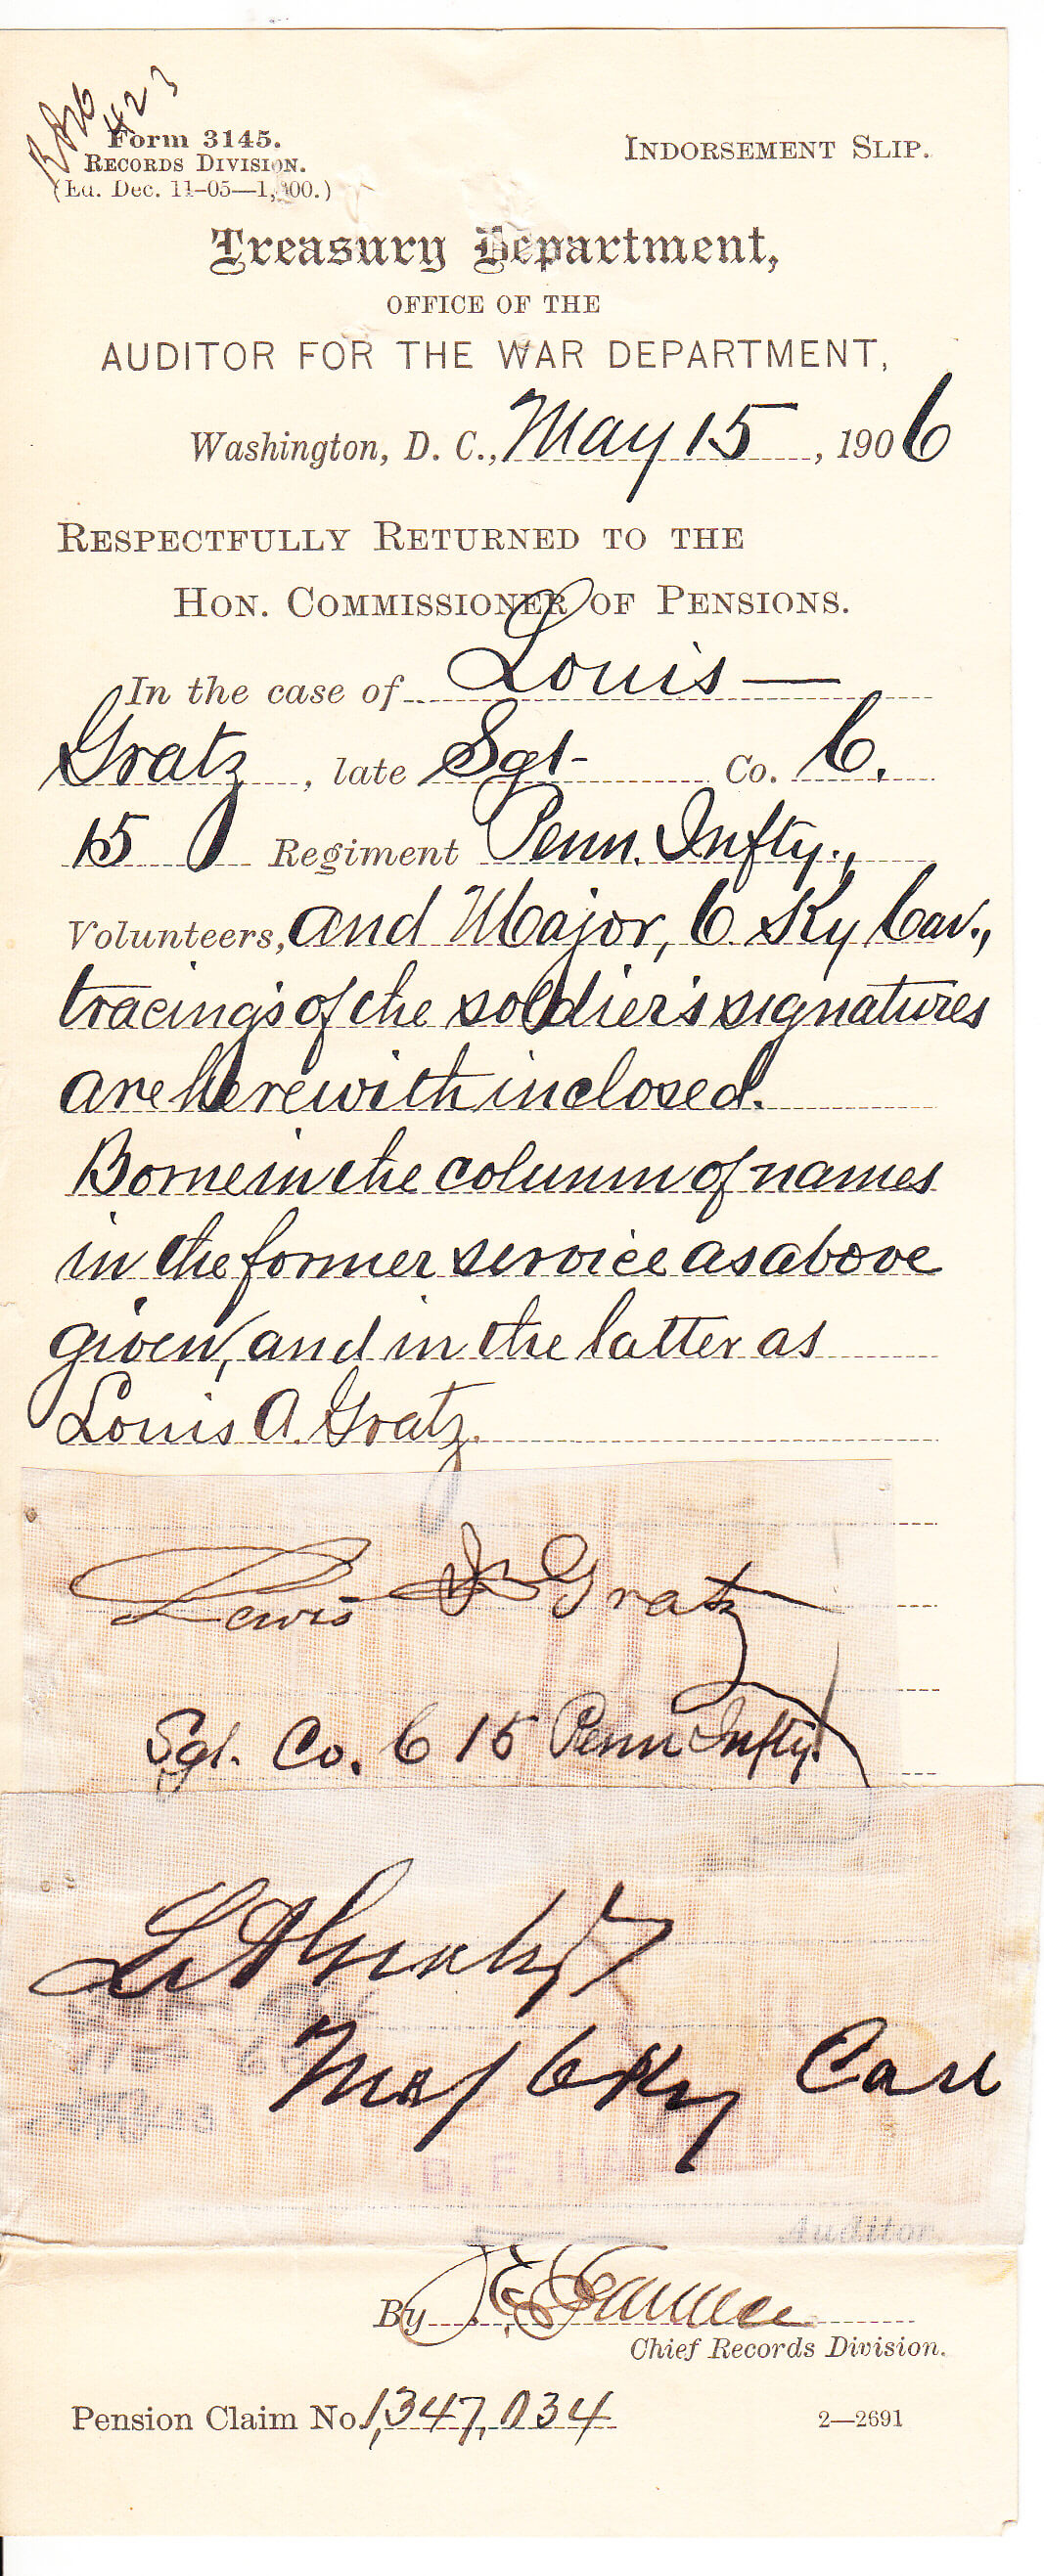 423
Form 3145.
RECORDS DIVISION.
(Ed. Dec. 11-05—1,000.)
INDORSEMENT SLIP.
Treasury Department,
OFFICE OF THE
AUDITOR FOR THE WAR DEPARTMENT,
Washington, D. C., May 15, 1906
RESPECTFULLY RETURNED TO THE
HON. COMMISSIONER OF PENSIONS.
In the case of Louis —
Gratz, late Sgt- Co. C.
15 Regiment Penn. Infty.,
Volunteers, and Major, 6 Ky Cav.,
tracings of the soldier's signatures
are herewith inclosed.
Borne in the column of names
in the former service as above
given, and in the latter as
Louis A. Gratz.
Lewis Gratz
Sgt. Co. C 15 Penn Infty.
Maj 6 Ky Cav
B. F. HA
Auditor.
By
Chief Records Division.
Pension Claim No. 1,347,034
2—2691